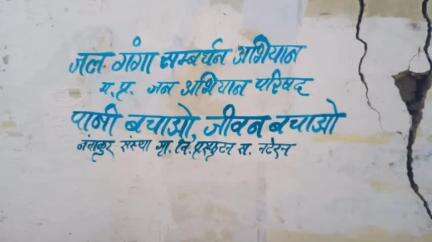 जल गंगा सम्बर्धन अभियान
म.प्र. जन अभियान परिषद
पानी बचाओ, जीवन बचाओ
नवांकुर संस्था ग्रा. वि. प्रस्फुटन स. नटेरन